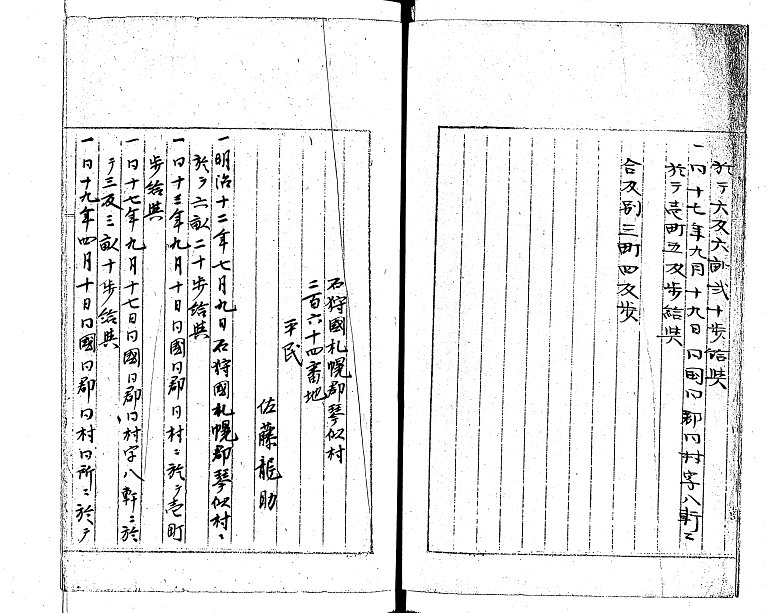 於テ六反六畝弐十歩給與
一同十七年九月十九日同國同郡同村字八軒ニ
於テ壱町五反歩給與
合反別三町四反歩
石狩國札幌郡琴似村
二百六十四番地
平民
佐藤龍助
一明治十二年七月九日石狩國札幌郡琴似村ニ
於テ六畝二十歩給與
一同十三年九月十日同國同郡同村ニ於テ壱町
歩給與
一同十七年九月十七日同國同郡同村字八軒ニ於
テ三反三畝十歩給與
一同十九年四月十日同國同郡同村同所ニ於テ